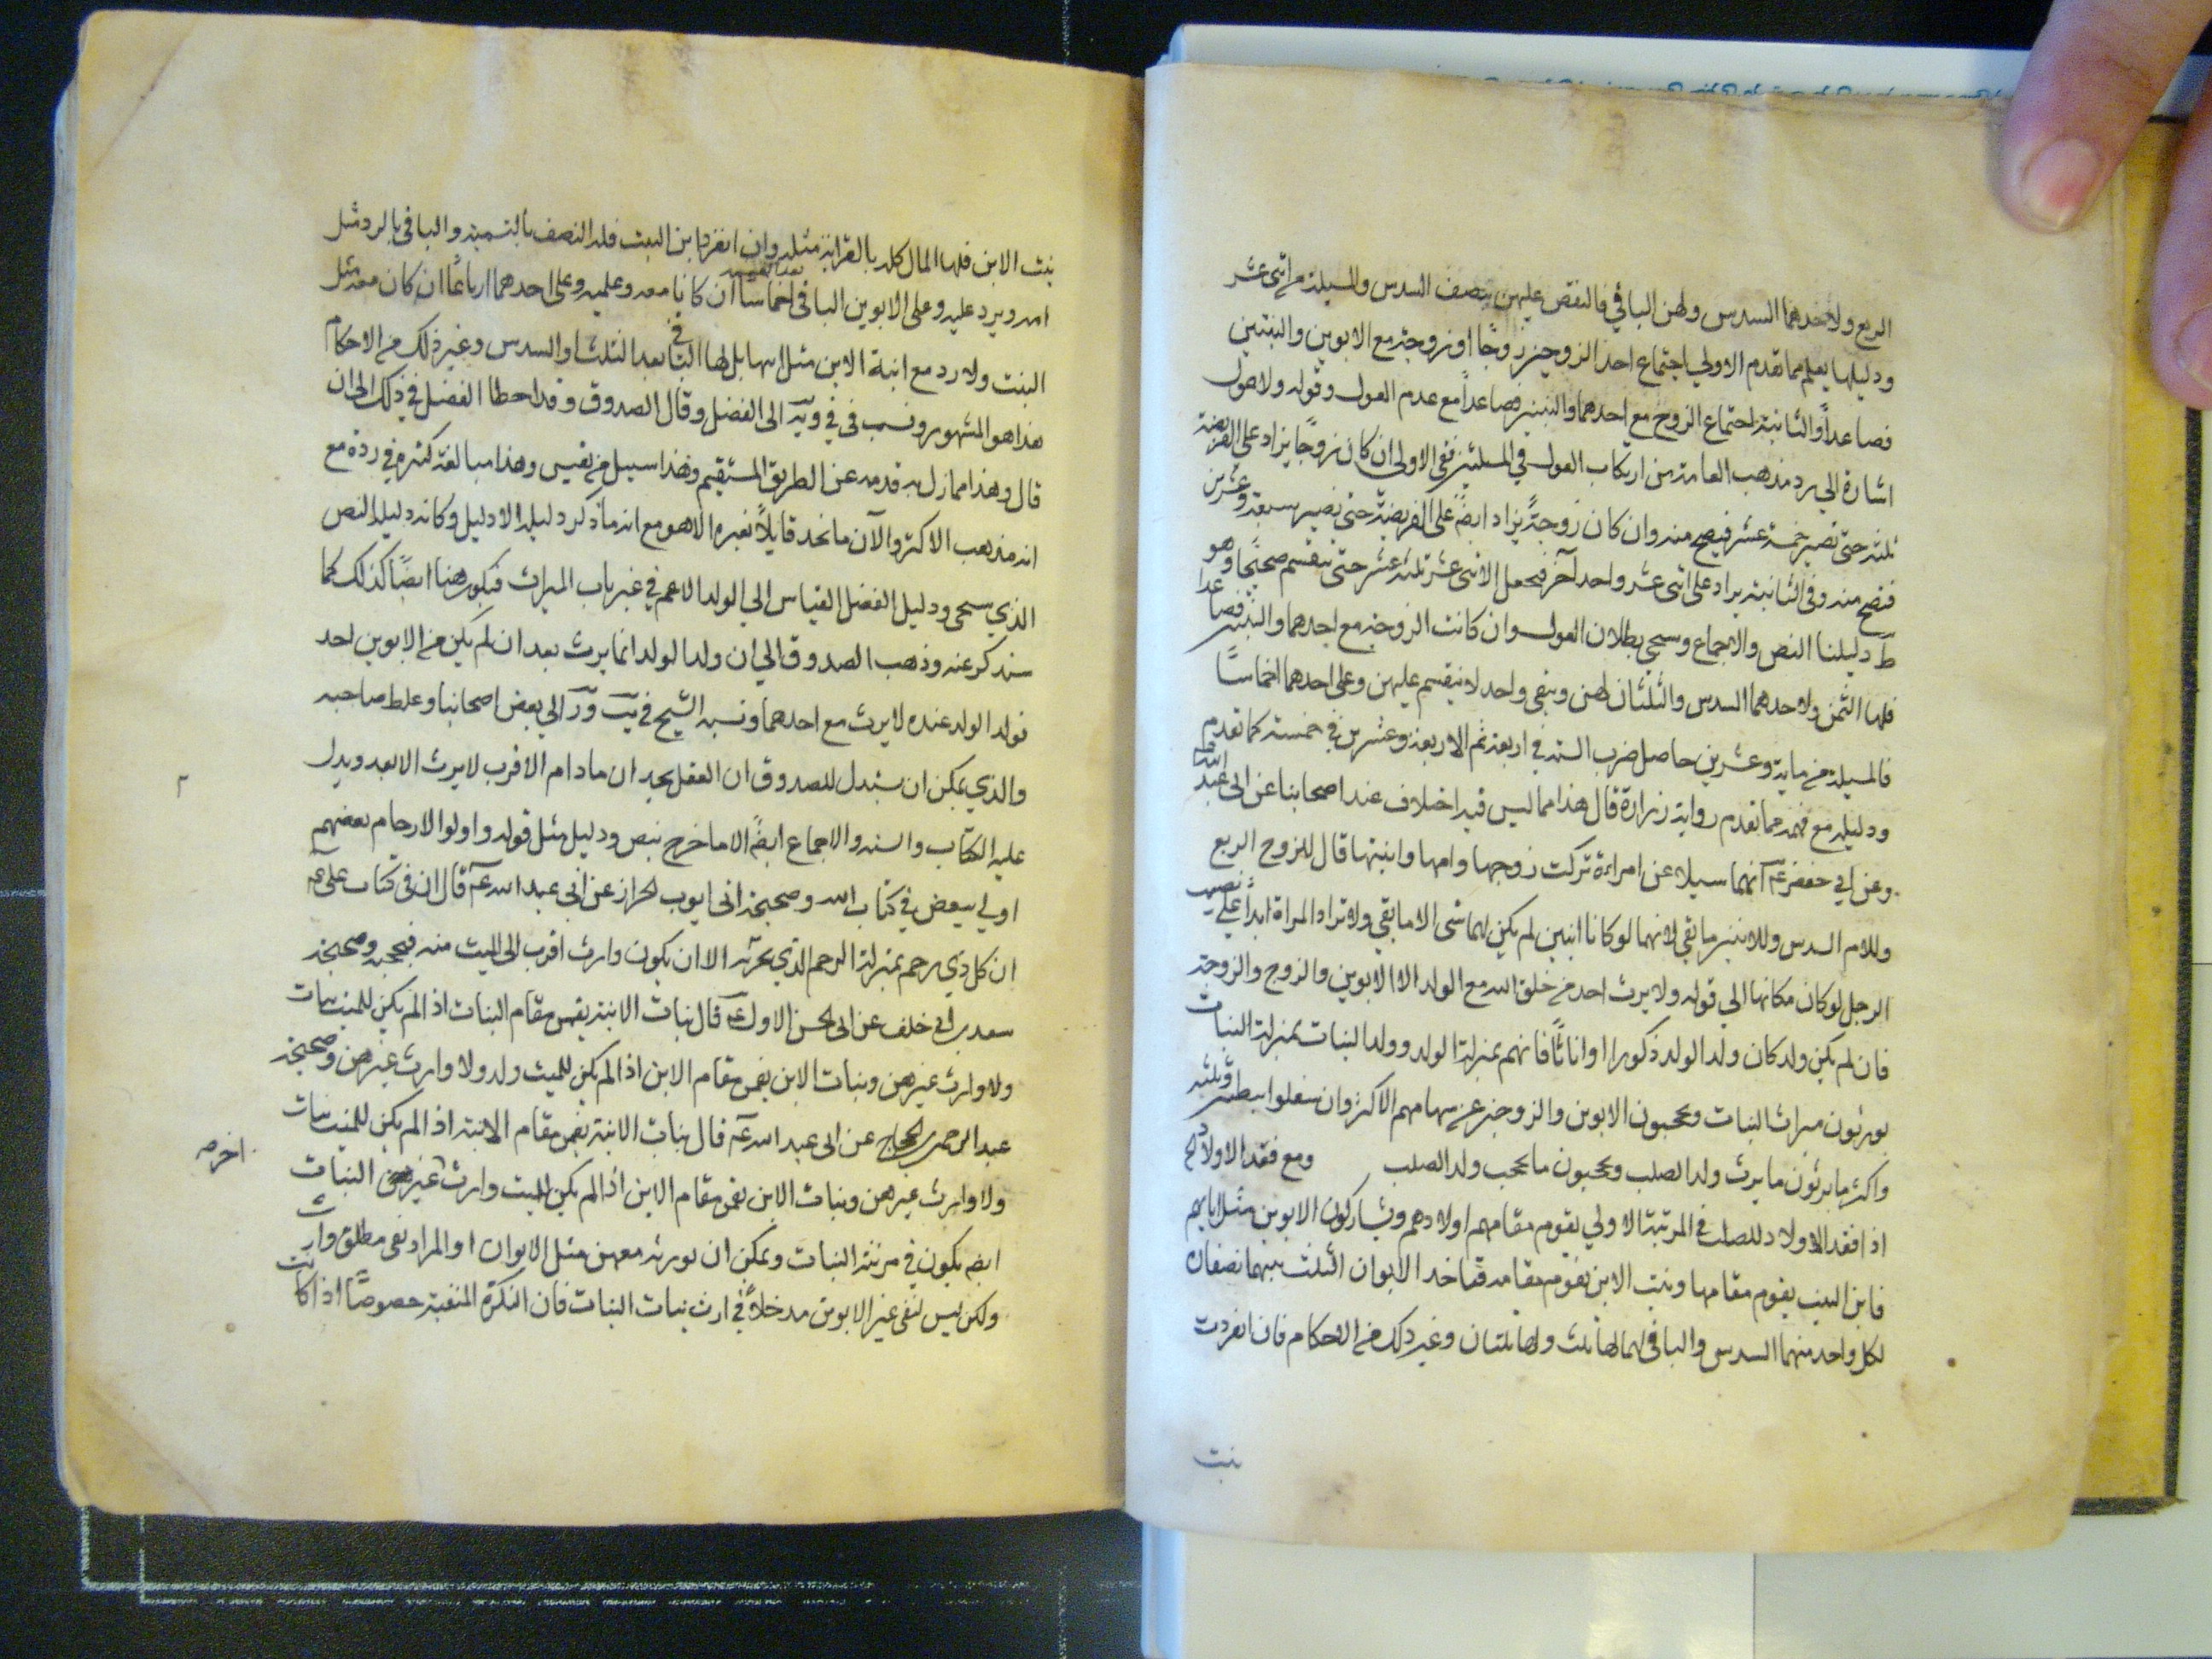 الربع ولاحدهما السدس ولهن الباقي فالنقص عليهن بنصف السدس والمسيلة من اثنى عشر
ودليلها يعلم مما تقدم الاولي اجتماع احد الزوجين زوجًا او زوجة مع الابوين والبنتين
فصاعداً والثانية اجتماع الزوج مع احدهما والبنتين فصاعداً مع عدم العول وقوله ولا عول
اشارة الي رد مذهب العامة من ارتكاب العول في المسئلتين ففي الاولى ان كان زوجًا يزاد على الفريضة
ثلثة حتى تصير خمسة عشر فيصح منه وان كان زوجةً يزاد ايضً على الفريضة حتى تصير سبعة وعشرين
فتصح منه وفي الثانية يزاد على اثنى عشر واحد آخر فيجعل الاثنى عشر ثلثة عشر حتى ينقسم صحيحًا وهو
ط دليلنا النص والاجماع وسيجي بطلان العول وان كانت الزوجة مع احدهما والبنتين فصاعدا
فلها الثمن ولاحدهما السدس والثلثان لهن ويبقى واحد لا ينقسم عليهن وعلى احدهما اخماسًا
فالمسيلة من ماية وعشرين حاصل ضرب الستة في اربعة ثم الاربعة وعشرين في خمسة كما تقدم
ودليله مع فهمه مما تقدم رواية زرارة قال هذا مما ليس فيه اختلاف عند اصحابنا عن ابى عبد الله
وعن ابي جعفر عَ انهما سيلا عن امراءة تركت زوجها وامها وابنتها قال للزوج الربع
وللام السدس وللابنتين ما بقي لانهما لو كانا ابنين لم يكن لهما شى الا ما بقي ولا تزاد المراة ابداً على نصيب
الرجل لو كان مكانها الي قوله ولا يرث احد من خلق الله مع الولد الا الابوين والزوج والزوجة
فان لم يكن ولد كان ولد الولد ذكورا او اناثًا فانهم بمنزلة الولد وولد البنات بمنزلة البنات
يورثون ميراث البنات ويحجبون الابوين والزوجين عن سهامهم الاكثر وان سفلوا ببطنين وثلثة
واكثر ما يرثون ما يرث ولد الصلب ويحجبون ما يحجب ولد الصلب ومع فقد الاولاد الخ
اذا فقد الاولاد للصلب في المرتبة الاولي يقوم مقامهم اولادهم ويشاركون الابوين مثل ابايهم
فابن البنت يقوم مقامها وبنت الابن يقوم مقامه فياخذ الابوان الثلث بينهما نصفان
لكل واحد منهما السدس والباقي لهما لها ثلث وله ثلثان وغير ذلك من الاحكام فان انفردت
بنت
بنت الابن فلها المال كله بالقرابة مثله وان انفرد ابن البنت فله النصف بالتسمية والباقي بالرد مثل
امه ويرد عليه وعلى الابوين الباقى اخماسًا ان كانا معه وعليه وعلى احدهما ارباعًا ان كان معه مثل
البنت ولا رد مع ابنة الابن مثل ابيها بل لها الباقي بعد الثلث او السدس وغير ذلك من الاحكام
هذا هو المشهور ونسب في في ويب الى الفضل وقال الصدوق وقد اخطا الفضل في ذلك الى ان
قال وهذا مما زل به قدمه عن الطريق المستقيم وهذا سبيل من يقيس وهذا مبالغة كثيرة في رده مع
انه مذهب الاكثر والآن ما نجد قايلًا بغيره الا هو مع انه ما ذكر دليله الا دليل وكانه دليله النص
الذي سيجى ودليل الفضل القياس الي الولد الاعم في غير باب الميراث فيكون هنا ايضًا كذلك كما
سنذكر عنه وذهب الصدوق الي ان ولد الولد انما يرث بعد ان لم يكن من الابوين احد
فولد الولد عنده لا يرث مع احدهما ونسبه الشيخ في يب ور الي بعض اصحابنا وغلط صاحبه
والذي يمكن ان يستدل للصدوق ان العقل يجد ان ما دام الاقرب لا يرث الابعد ويدل
عليه الكتاب والسنة والاجماع ايضً الا ما خرج بنص ودليل مثل قوله واولوا الارحام بعضهم
اولي ببعض في كتاب الله وصحيحة ابى ايوب الخراز عن ابى عبد الله عَ قال ان في كتاب على عَ
ان كل ذي رحم بمنزلة الرحم الذي يجر به الا ان يكون وارث اقرب الى الميت منه فيحجبه وصحيحة
سعد بن ابي خلف عن ابى الحسن الاول عَ قال بنات الابنة يقمن مقام البنات اذا لم يكن للميت بنات
ولا وارث غيرهن وبنات الابن يقمن مقام الابن اذا لم يكن للميت ولد ولا وارث غيرهن وصحيحة
عبد الرحمن بن الحجاج عن ابى عبد الله عَ قال بنات الابنة يقمن مقام الابنة اذا لم يكن للميت بنات
ولا وارث غيرهن وبنات الابن يقمن مقام الابن اذا لم يكن للميت وارث غيرهن البنات
ايضً يكون في مرتبة البنات ويمكن ان يورثه معهن مثل الابوان او المراد نفى مطلق وارث
ولكن ليس لنفى غير الابوين مدخلاً في ارث بنات البنات فان النكرة المنفية خصوصًا اذا كانت